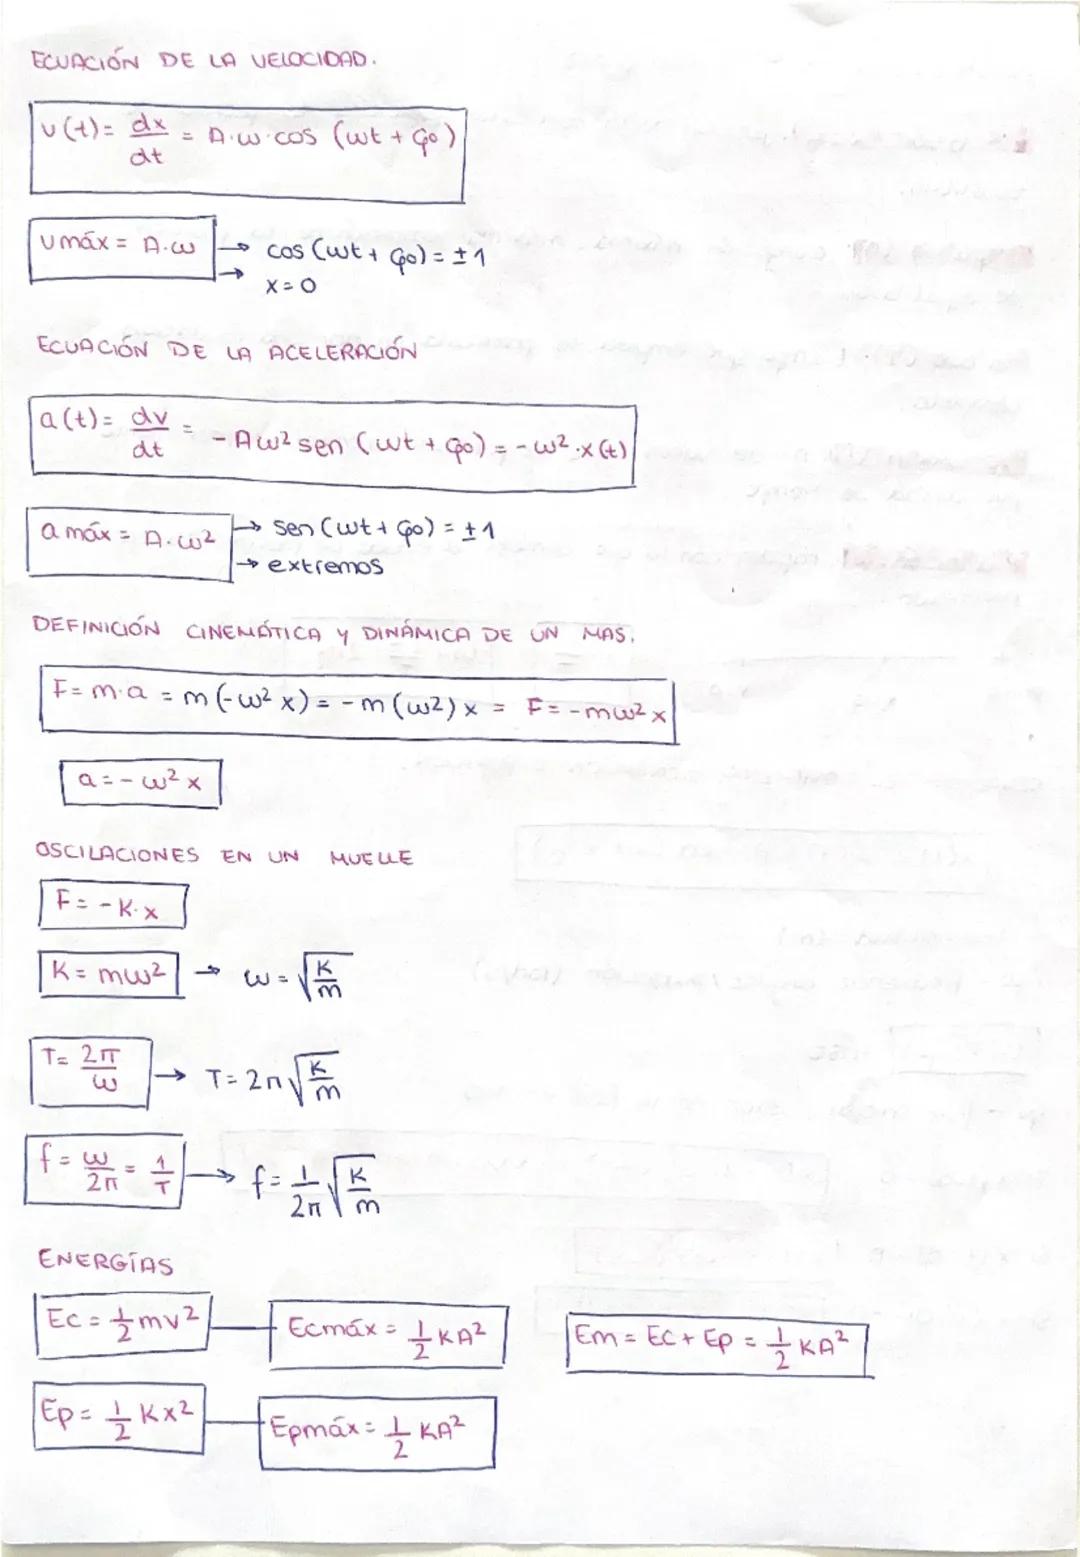 ECUACIÓN DE LA VELOCIDAD.
v(t) = dx/dt = A·ω·cos (ωt + φ0)
vmáx = A·ω → cos (ωt + φ0) = ±1
→ x = 0
ECUACIÓN DE LA ACELERACIÓN
a(t) = dv/dt = -Aω² sen (ωt + φ0) = -ω²·x(t)
a máx = A·ω² → sen (ωt + φ0) = ±1
→ extremos
DEFINICIÓN CINEMÁTICA Y DINÁMICA DE UN MAS.
F = m·a = m(-ω² x) = -m(ω²)x = F = -mω² x
a = -ω² x
OSCILACIONES EN UN MUELLE
F = -K·x
K = mω² → ω = √(K/m)
T = 2π/ω → T = 2π √(K/m)
f = ω/2π = 1/T → f = 1/2π √(K/m)
ENERGÍAS
Ec = 1/2 mv² Ecmáx = 1/2 KA² Em = Ec + Ep = 1/2 KA²
Ep = 1/2 Kx² Epmáx = 1/2 KA²